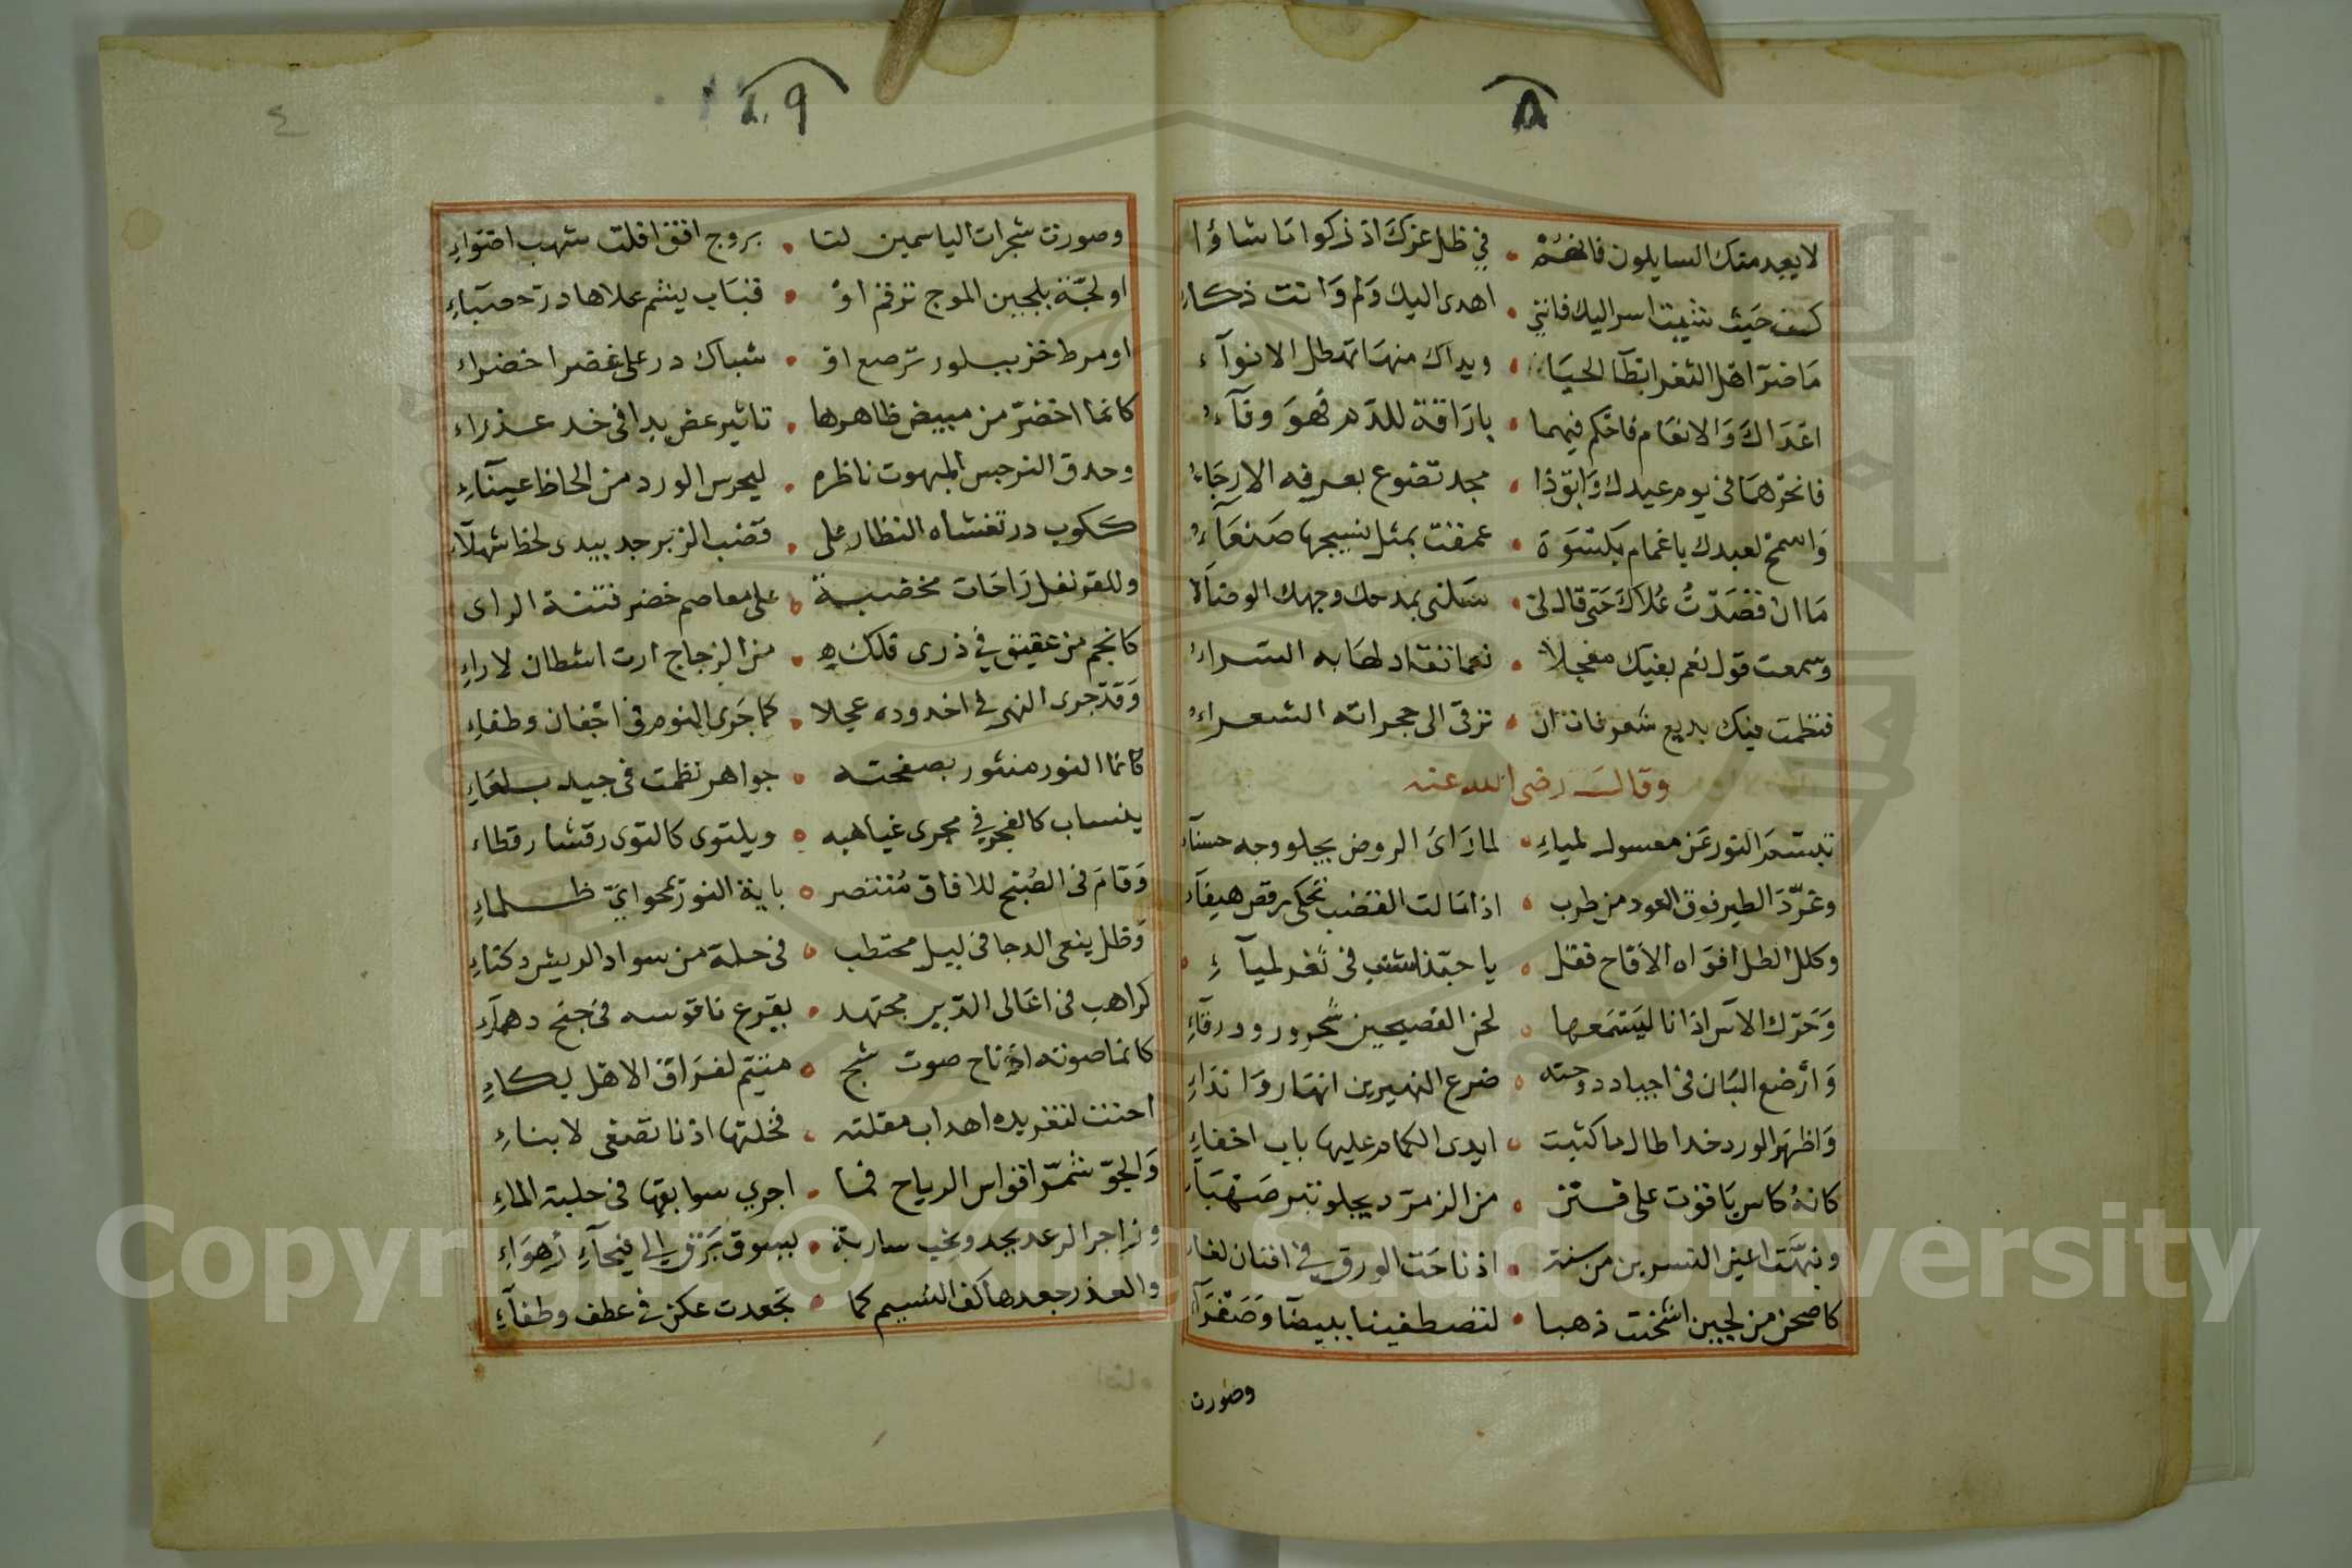 ٨
لا يعد منك السايلون فانهم • في ظل عزك اذ ذكوا ما شاؤا
كيف حيث شيت اسر اليك فانني • اهدى اليك ولم وانت ذكاء
ما ضر اهل الثغر ابطآ الحيا • ويداك منها تهطل الانوآء
اعداك والانعام فاحكم فيهما • باراقة للدم فهو وقآء
فانحرهما في يوم عيدك وابق ذا • مجد تضوع بعرفه الارجاء
واسمح لعبدك يا غمام بكسوة • عمقت بمثل نسيجها صنعآء
ما ان قصدت علاك حتى قال لى • سلنى بمدحك وجهك الوضآء
وسمعت قول نعم بفيك معجلا • نعما تقاد لها به السراء
فنظمت فيك بديع شعر فات ان • ترقى الى حجراته الشعراء
وقال رضى الله عنه
تبسم النور عن معسول لمياء • لما راى الروض يجلو وجه حسنآء
وغرد الطير فوق العود من طرب • اذا مالت القضب تحكى رقص هيفآء
وكلل الطل افواه الاقاح فقل • يا حبذا شنب فى ثغر لميآء
وحرك الآس اذانا ليسمعها • لحن الفصيحين شحرور ودرقآء
وارضع البان فى اجياد دوحته • ضرع النهيرين انهار وانداء
واظهر الورد خدا طال ما كتبت • ايدى الكمام عليها باب اخفاء
كانه كاس ياقوت على قنن • من الزمرد يجلو تبر صهبآء
ونبهت اعين النسرين من سنة • اذ ناحت الورق في افنان لفاء
كاصحن من لجين اشحنت ذهبا • لتصطفينا ببيضآ وصفرآء
وصورت
٩
٤
وصورت شجرات الياسمين لنا • بروج افق اقلت شهب اضواء
او لجة بلجين الموج ترقم او • قباب ينشم علاها در حصبآء
او مرط خز ببلور ترصع او • شباك در على غضرا خضراء
كانما اخضر من مبيض ظاهرها • تاثير عض بدا فى خد عذراء
وحدق النرجس المبهوت ناظره • ليحرس الورد من الحاظ عينآء
ككوب در تغشاه النظار على • قضب الزبرجد يبدى لحظ شهلآء
وللقرنفل راحات مخضبة • على معاصم خضر فتنة الراى
كانجم من عقيق في ذرى فلك • من الزجاج ارت اشطان لاراء
وقد جرى النهر في اخدوده عجلا • كما جرى النوم فى اجفان وطفاء
كانما النور منثور بصفحته • جواهر نظمت فى جيد بلعاء
ينساب كالفجر في مجرى غياهبه • ويلتوى كالتوى رقشا رقطاء
وقام فى الصبح للافاق منتصر • باية النور تمحو اي ظلماء
وظل ينعى الدجا فى ليل محتطب • فى حلة من سواد الريش دكناء
كراهب فى اعالى الدير مجتهد • بقرع ناقوسه فى جنح دهمآء
كانما صوته اذ ناح صوت شج • متيم لفراق الاهل بكاء
احنت لتغريده اهداب مقلته • فخلتها اذنا تصغى لابناء
والجو شمر افواس الرياح فما • اجري سوابقها فى حلبة الماء
وزاجر الرعد يجد ونجب سارية • بسوق برق الى فيحآء رهواء
والعذر جعدها كف النسيم كما • تجعدت عكن في عطف وطفآء